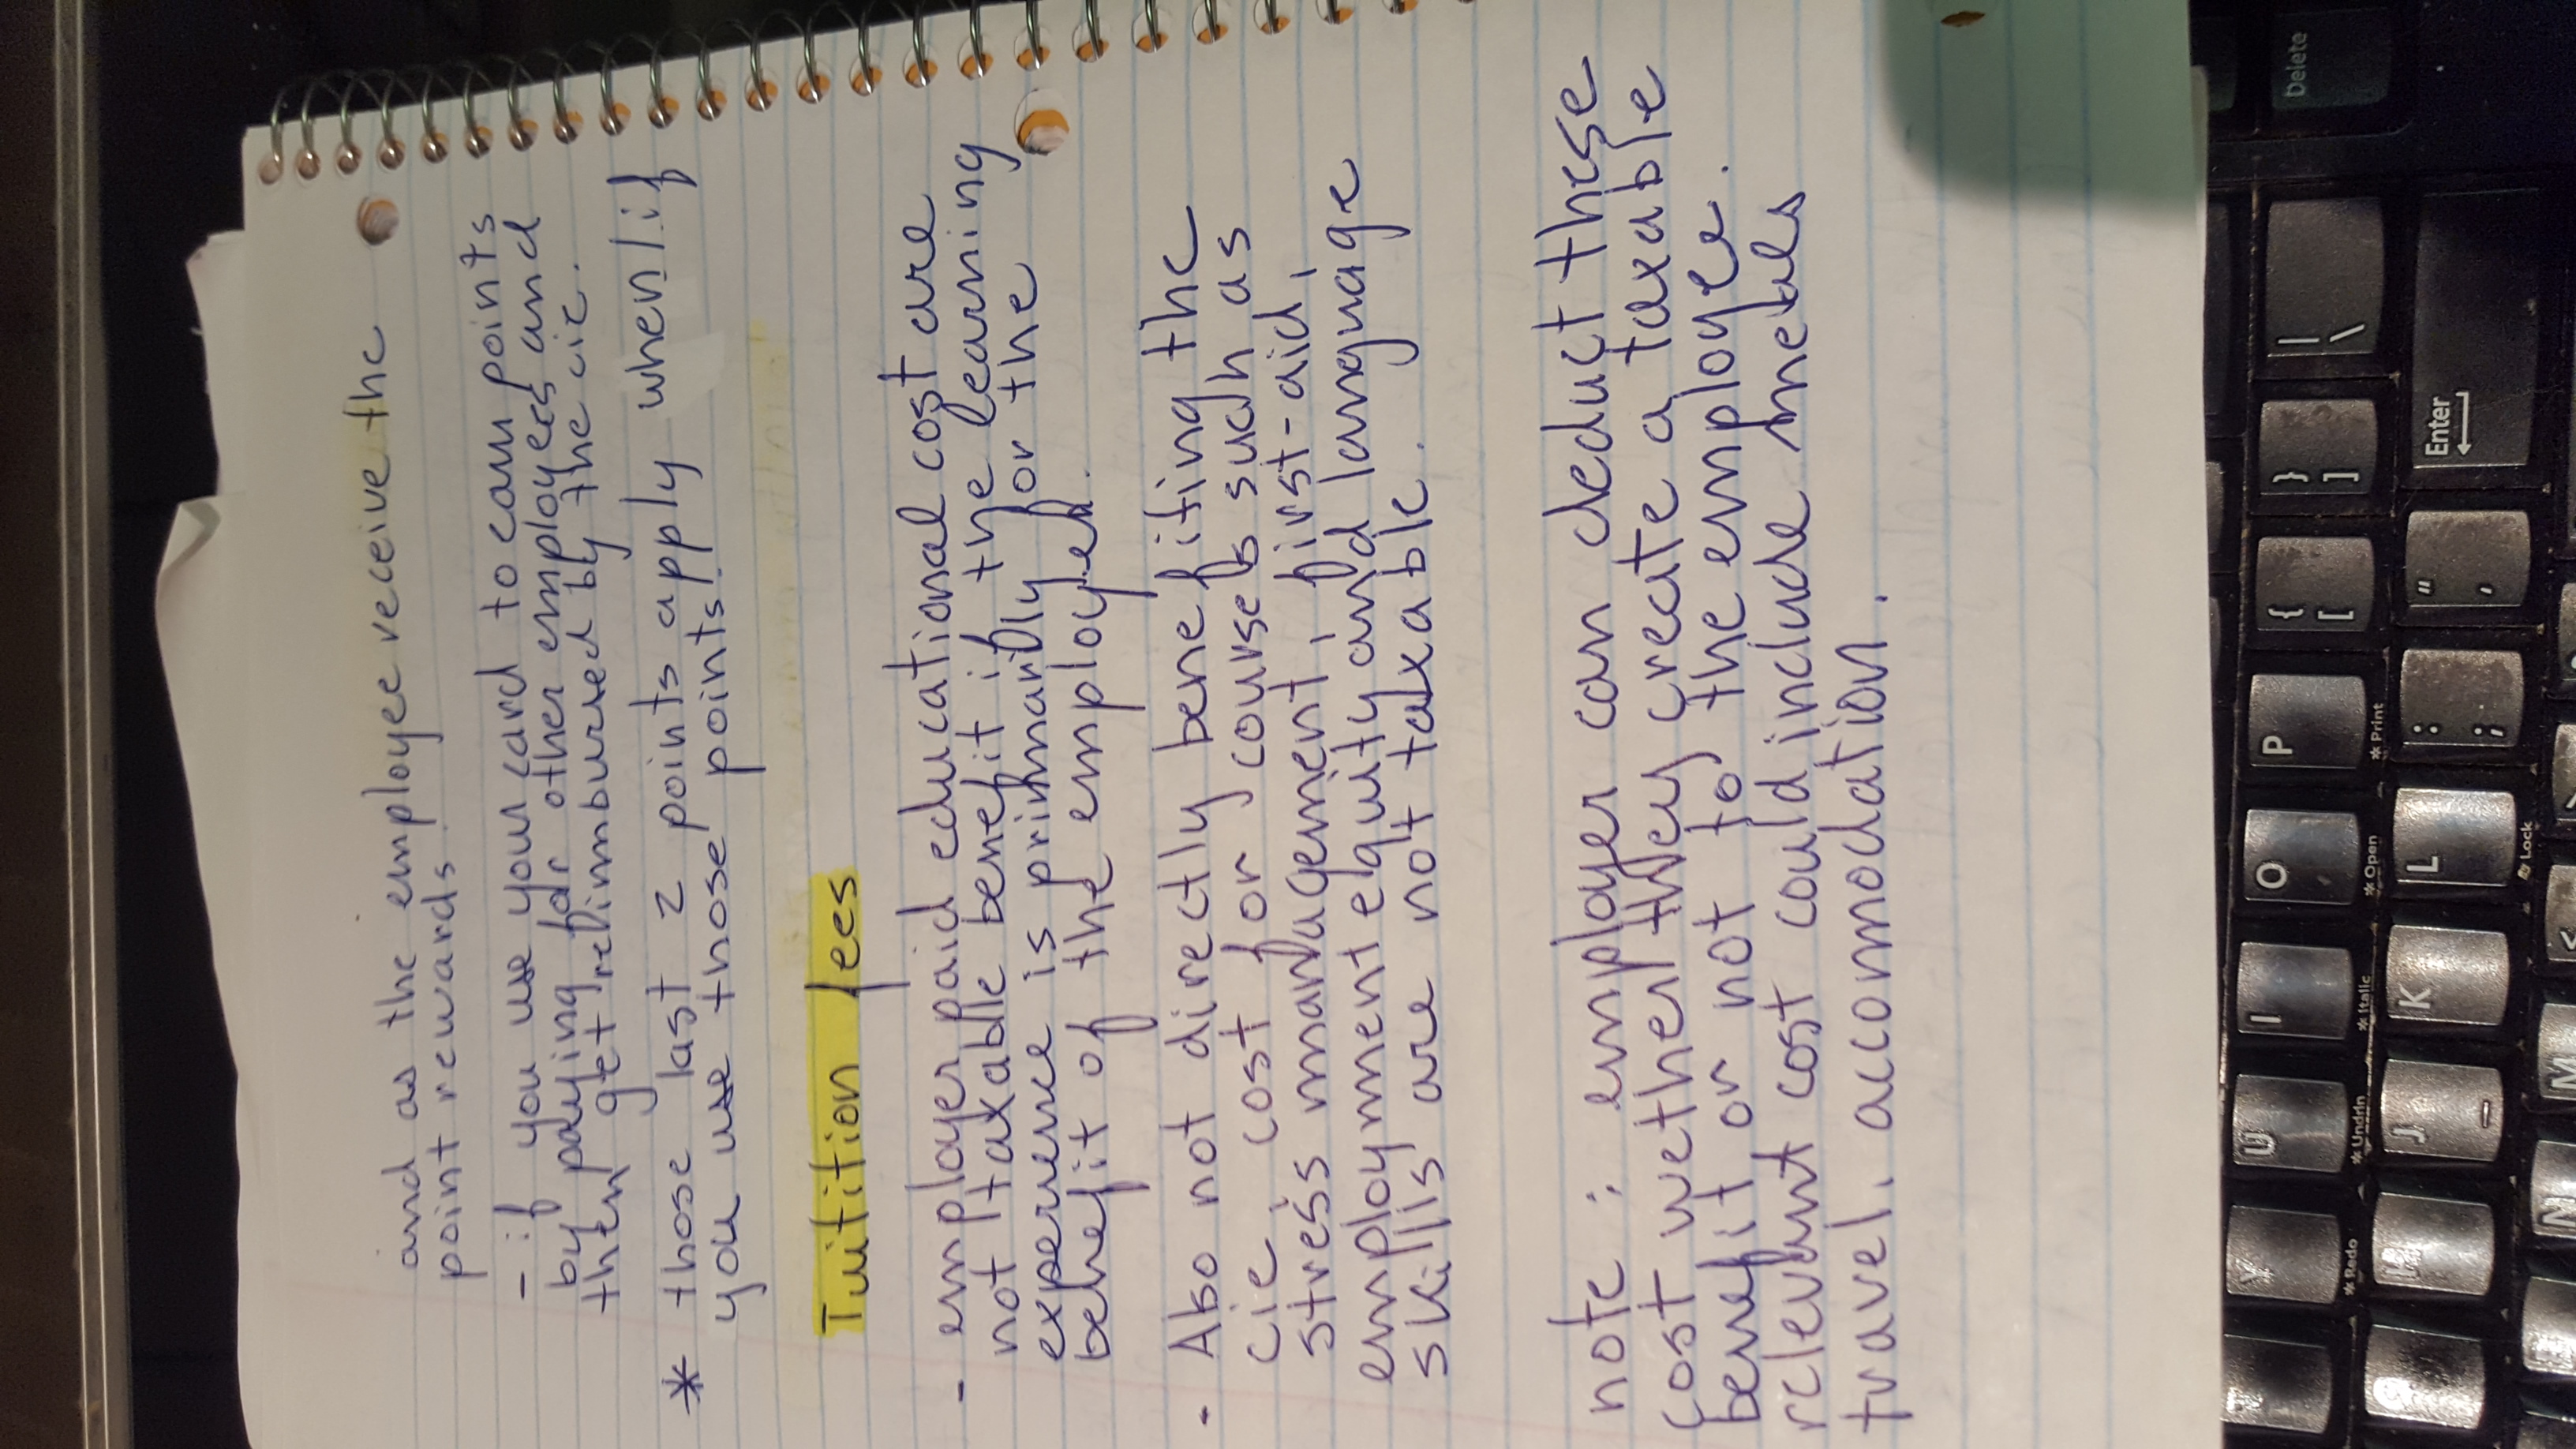 and as the employee receive the
point rewards.
- if you use your card to earn points
by paying for other employees and
then get reimbursed by the cie.
* those last 2 points apply when/if
you use those points!
Tuition fees
- employer paid educational cost are
not taxable benefit if the learning
experience is primarily for the
benefit of the employer.
- Also not directly benefiting the
cie cost for courses such as
stress management, first-aid,
employment equity and language
skills are not taxable.
note: employer can deduct these
cost wether they create a taxable
benefit or not to the employee.
relevant cost could include meals
travel, accomodation.
Delete
| \
} ]
{ [
P
O
I
U
Y
* Print
* Open
* Italic
* Undrln
* Redo
Enter
" '
: ;
L
K
J
H
Lock
M
N